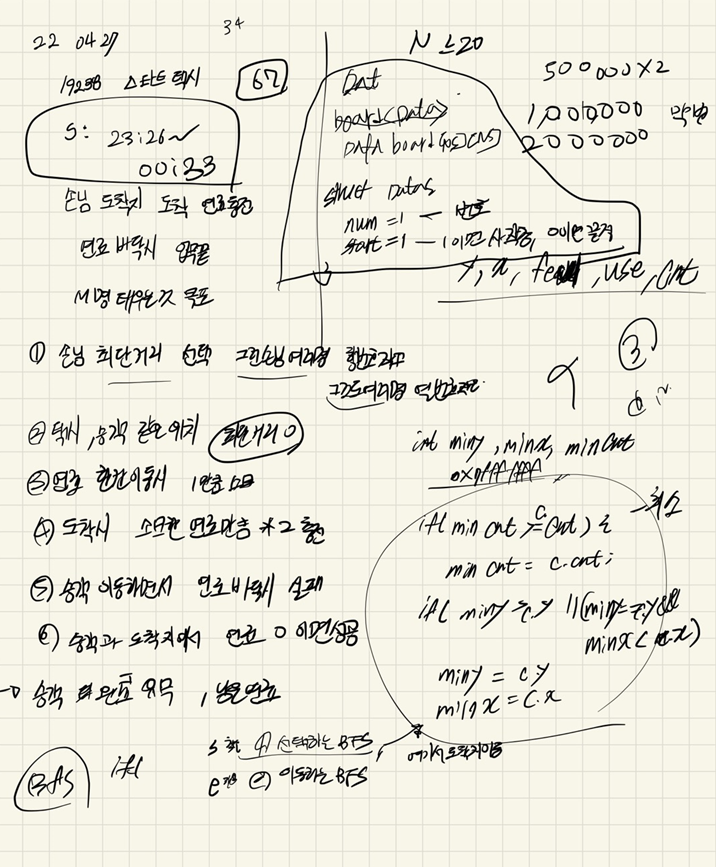 22 04 27
34
19238 스타트 택시
67
S: 23:26 ~
00:33
손님 도착지 도착 연료충전
연료 바닥시 업무끝
M명 태우는것 목표
N ≤ 20
Dat
board<Datas>
DATA board[20][20]
struct Datas
num = 1 - 번호
start = 1 - 1이면 시작점, 0이면 끝점
y, x, , use, cnt
500000 X 2
1,000,000
2000000
① 손님 최단거리 선택 그런손님여러명 행번호작은
그것도여러명 열번호작은
② 택시, 승객 같은위치 최단거리 0
③ 연료 한칸이동시 1만큼 소모
④ 도착시 소모한 연료만큼 * 2 충전
⑤ 승객 이동하면서 연료 바닥시 실패
⑥ 승객과 도착지에서 연료 0 이면성공
→ 승객 완료 유무, 남은연료
③
int miny, minx, mincnt
if( min cnt >= c.cnt) {
최소
min cnt = c.cnt;
if( miny > c.y || (miny == c.y &&
minx < c.x)
miny = c.y
minx = c.x
여기서 도착지이동
BFS
if(
s ① 선택하는 BFS,
e ② 이동하는 BFS